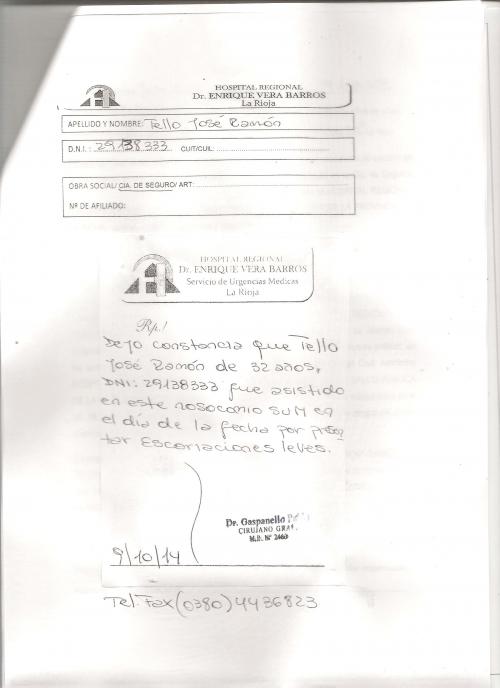 HOSPITAL REGIONAL
Dr. ENRIQUE VERA BARROS
La Rioja
APELLIDO Y NOMBRE: Tello José Ramón
D.N.I.: 29138333 CUIT/CUIL:
OBRA SOCIAL/ CIA. DE SEGURO/ ART:
Nº DE AFILIADO:
HOSPITAL REGIONAL
Dr. ENRIQUE VERA BARROS
Servicio de Urgencias Medicas
La Rioja
Rp./
Dejo constancia que Tello
José Ramón de 32 años,
DNI: 29138333 fue asistido
en este nosocomio SUM en
el día de la fecha por presen
tar Escorriaciones leves.
Dr. Gaspanello
CIRUJANO GRAL.
M.P. Nº 2460
9/10/14
Tel. Fax (0380) 4436823